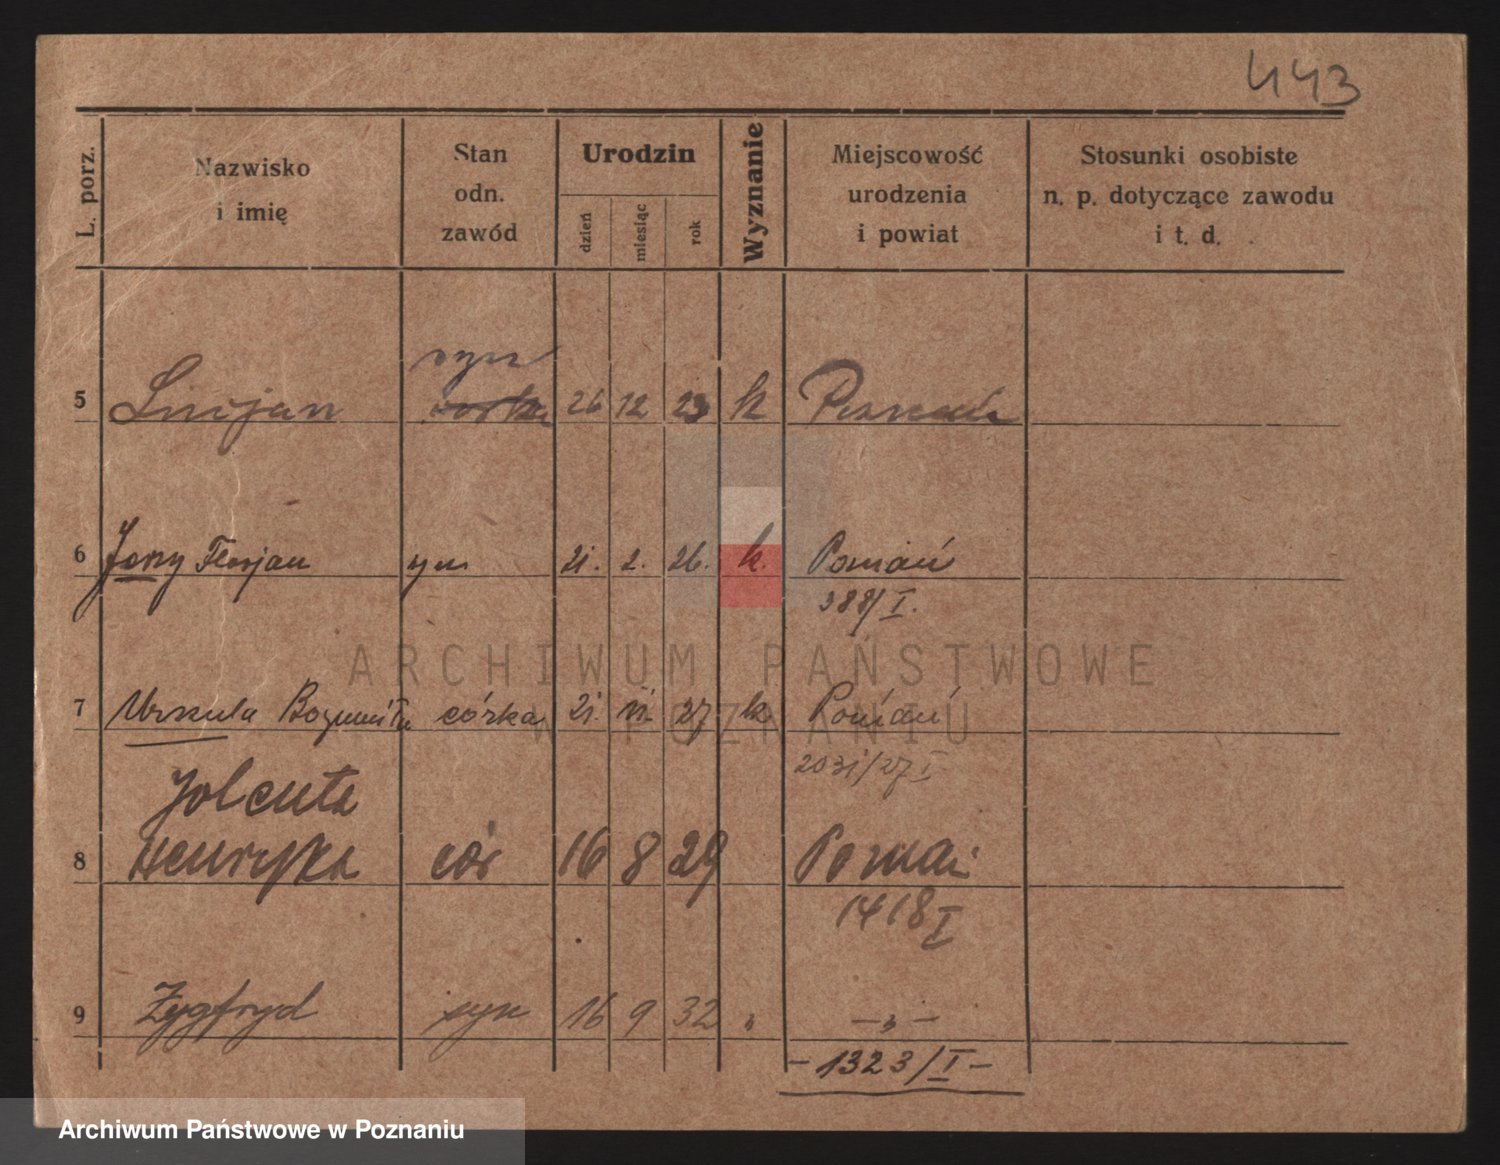 443
L. porz.
Nazwisko
i imię
Stan
odn.
zawód
Urodzin
dzień
miesiąc
rok
Wyznanie
Miejscowość
urodzenia
i powiat
Stosunki osobiste
n. p. dotyczące zawodu
i t. d.
syn
5 Lucjan córka 26 12 23 k Poznań
6 Jerzy Florjan syn 21. 2. 26. k. Poznań
388/I.
ARCHIWUM PAŃSTWOWE
7 Urszula Bogumiła córka 21. VI. 27 k Poznań
W POZNANIU
2031/27 I
Jolenta
8 Henryka cór 16 8 29 Poznań
1418 I
9 Zygfryd syn 16 9 32 " — „ —
- 1323/I -
Archiwum Państwowe w Poznaniu